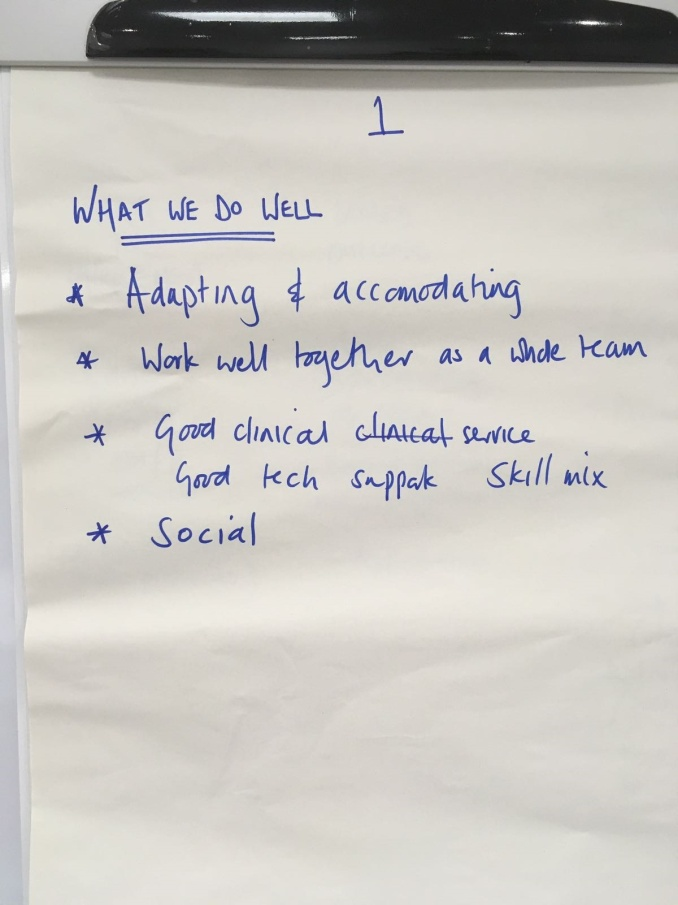 1
WHAT WE DO WELL
* Adapting & accomodating
* Work well together as a whole team
* Good clinical clinical service
Good tech support Skill mix
* Social